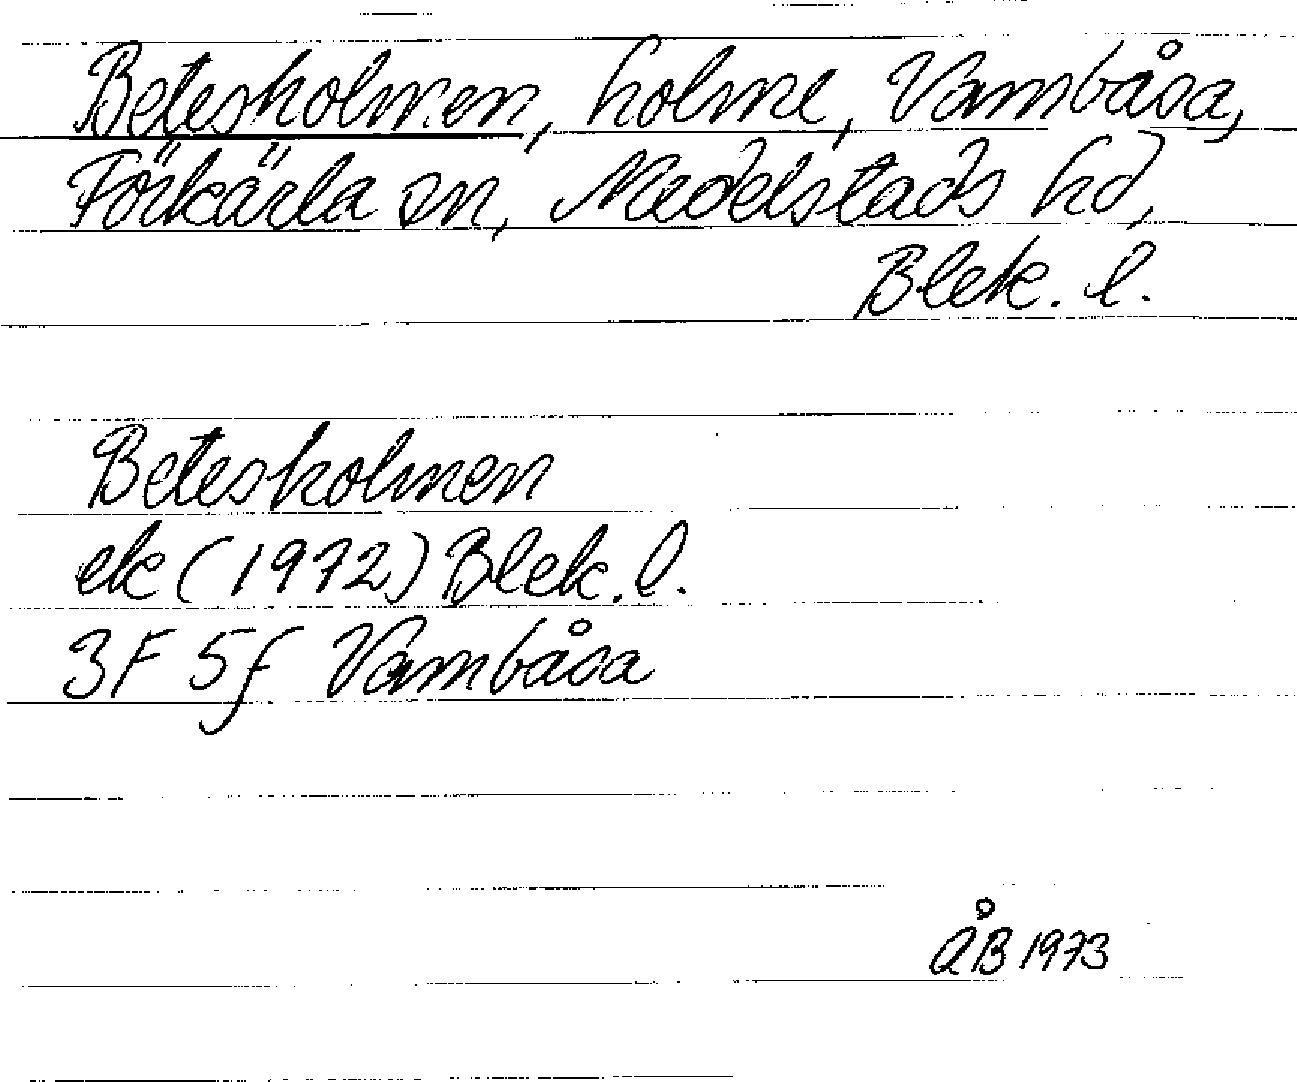 Betesholmen, holme, Vambåsa,
Förkärla sn, Medelstads hd,
Blek. l.
Betesholmen
ek (1972) Blek. l.
3F 5f Vambåsa
ÅB 1973